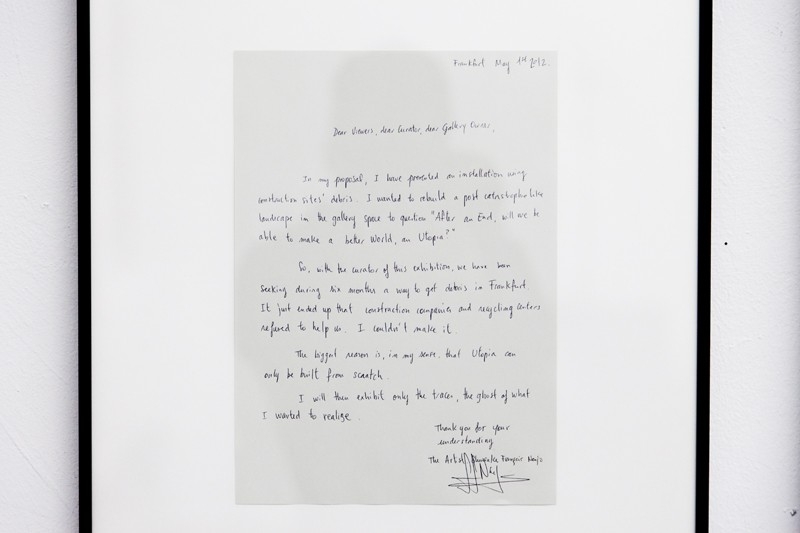 Frankfurt May 1st 2012.
Dear Viewers, dear Curator, dear Gallery Owner,
In my proposal, I have presented an installation using
construction sites' debris. I wanted to rebuild a post catastrophe like
landscape in the gallery space to question "After an End, will we be
able to make a better World, an Utopia?"
So, with the curator of this exhibition, we have been
seeking during six months a way to get debris in Frankfurt.
It just ended up that construction companies and recycling centers
refused to help us. I couldn't make it.
The biggest reason is, in my sense, that Utopia can
only be built from scratch.
I will then exhibit only the traces, the ghost of what
I wanted to realize.
Thank you for your
understanding
The Artist